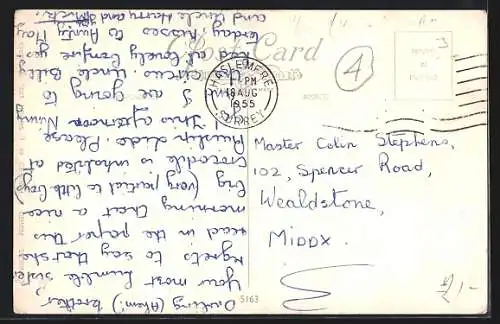 Post Card
HASLEMERE
PM
18 AUG
1955
SURREY
4
Darling (Ahem!) brother,
Your most humble sister
regrets to say that she
read in the paper this
morning that a nice
big (very partial to little boys)
Crocodile is inhabited at
Ruislip Lido. Please
! This afternoon
I are going to
circus. Uncle Billy
had a lovely bonfire yes
terday kisses to Aunty May
and Uncle Harry and
Master Colin Stephens,
102, Spencer Road,
Wealdstone,
MIDDX.
5163
£1-